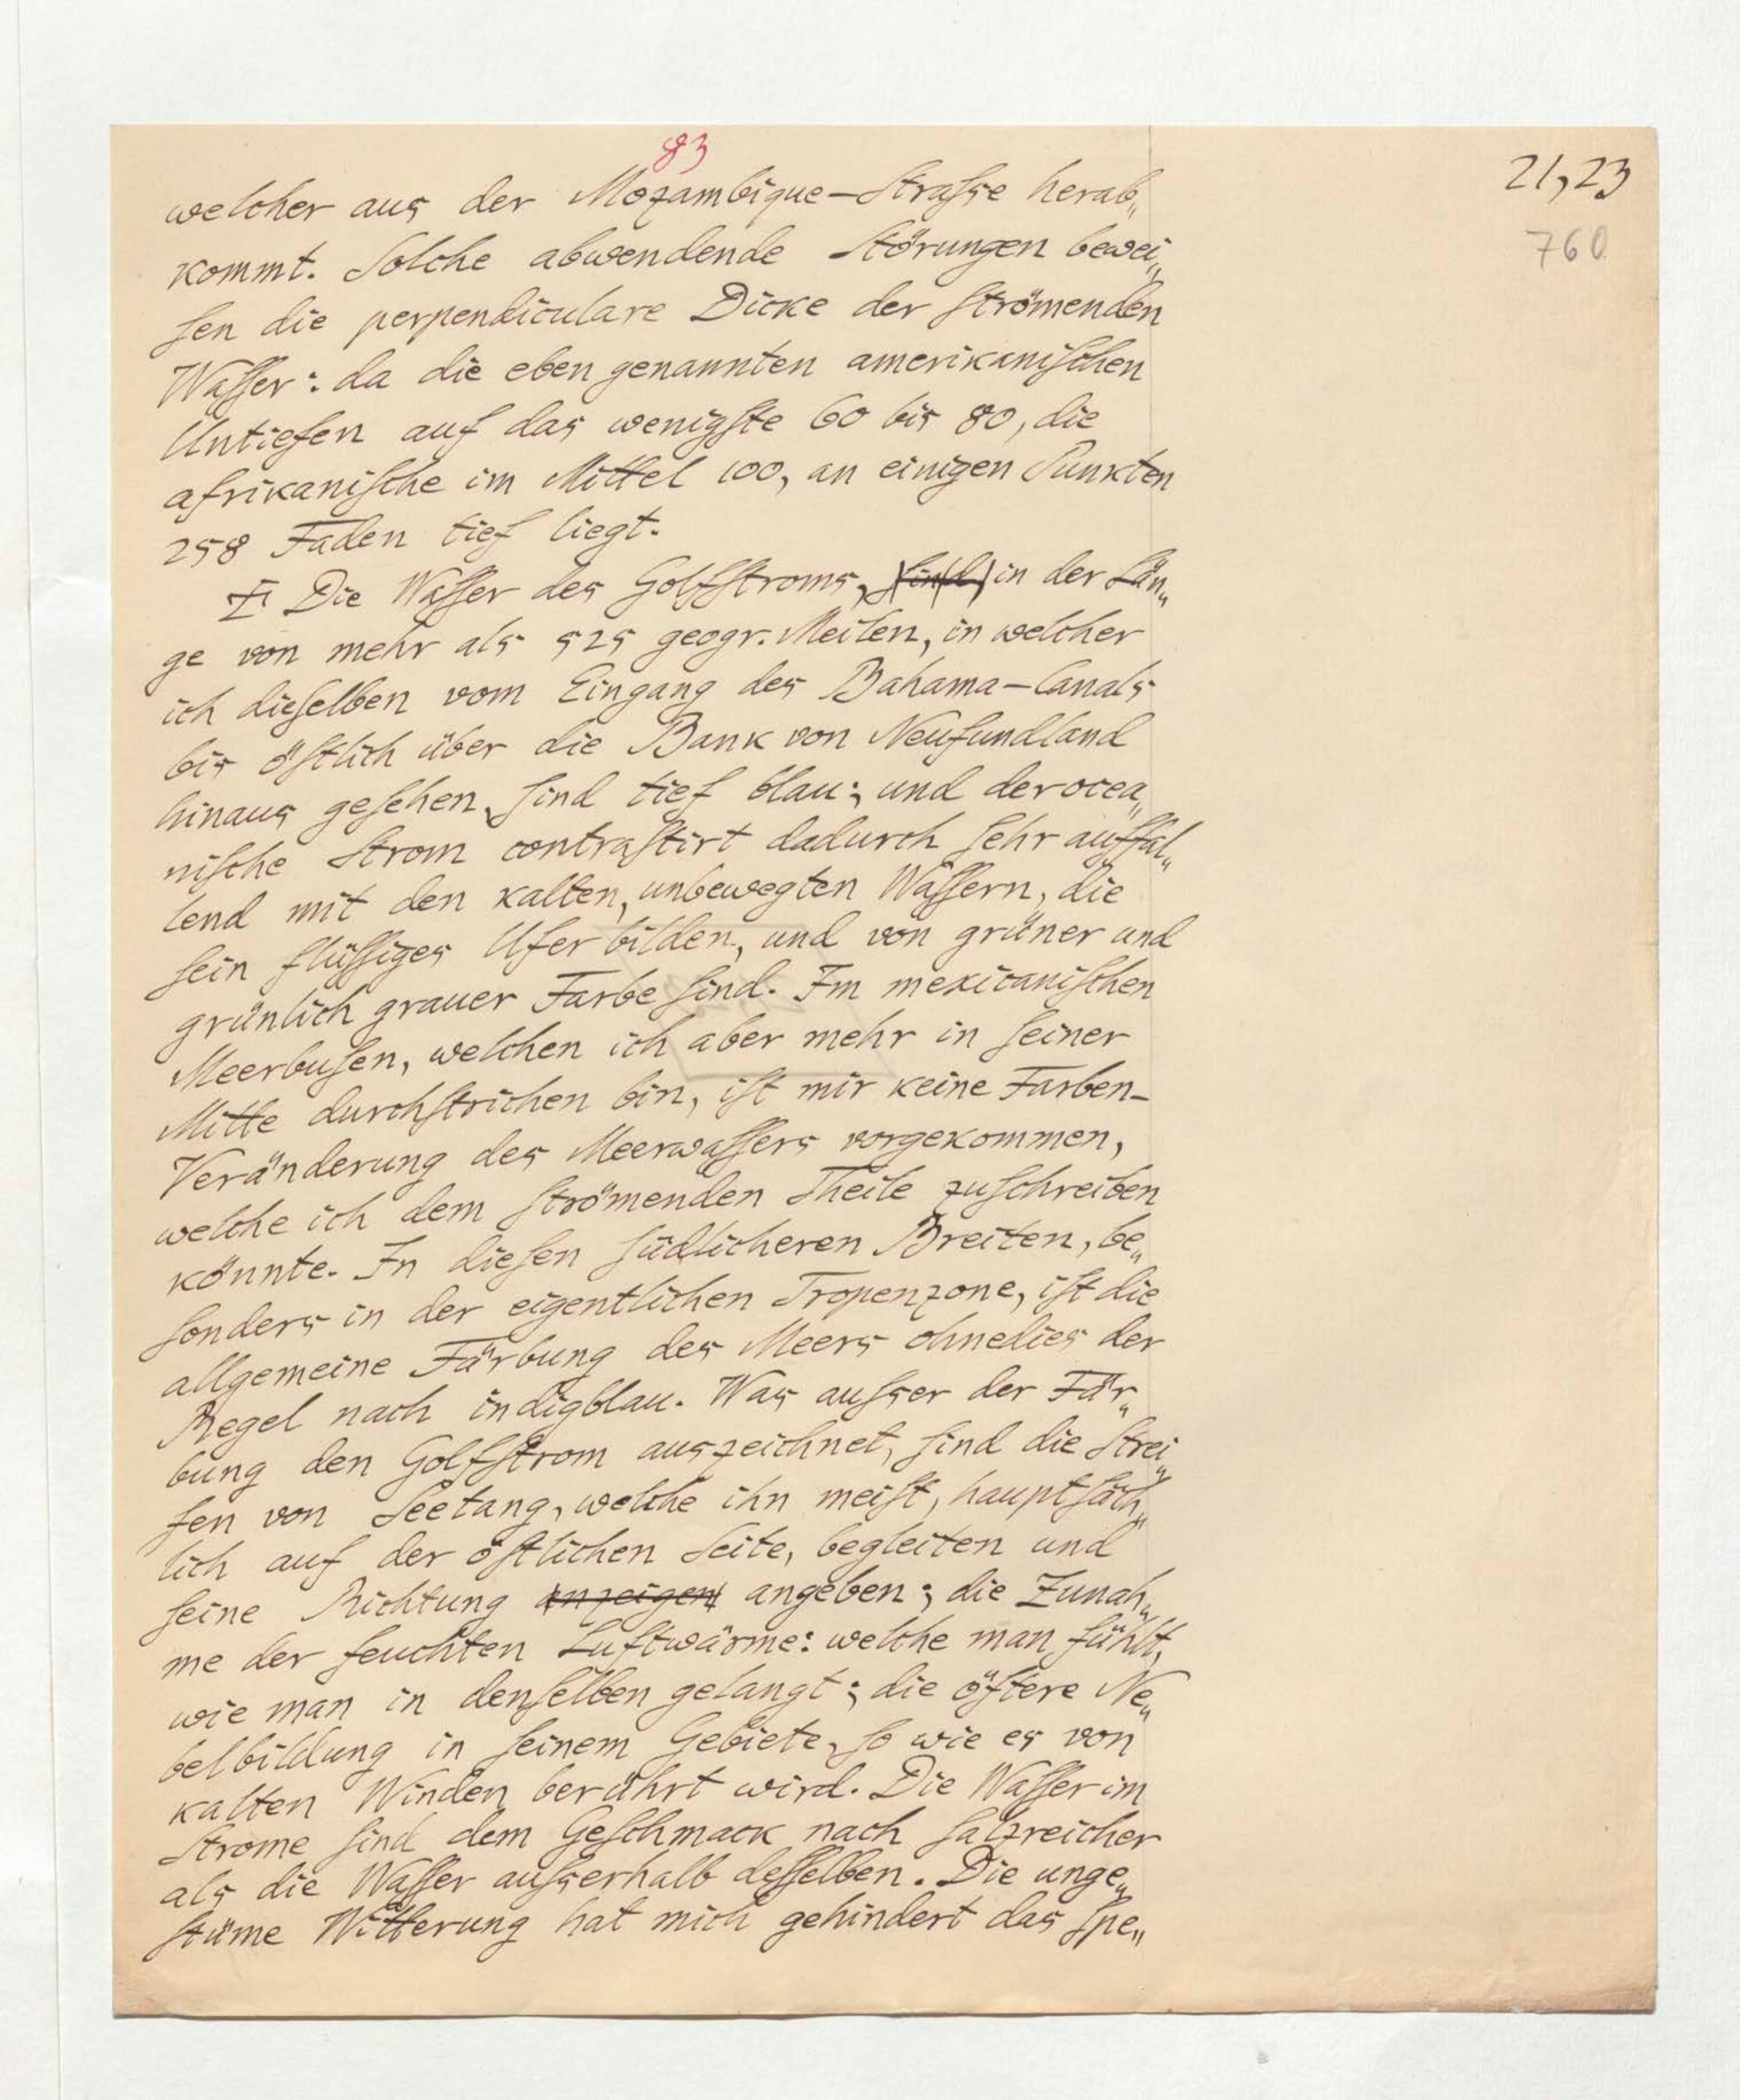 83
21,23
760
welcher aus der Mozambique-Straſse herab„
kommt. Solche abwendende Störungen bewei„
ſen die perpendiculare Dicke der ſtrömenden
Waſſer: da die eben genannten amerikaniſchen
Untiefen auf das wenigſte 60 bis 80, die
afrikaniſche im Mittel 100, an einigen Punkten
258 Faden tief liegt.
Die Waſſer des Golfſtroms, ſind, in der Län„
ge von mehr als 525 geogr. Meilen, in welcher
ich dieſelben vom Eingang des Bahama-Canals
bis öſtlich über die Bank von Neufundland
hinaus geſehen, ſind tief blau; und der ocea„
niſche Strom contraſtirt dadurch ſehr auffal„
lend mit den kalten, unbewegten Waſſern, die
ſein flüſſiges Ufer bilden, und von grüner und
grünlich grauer Farbe ſind. Im mexicaniſchen
Meerbuſen, welchen ich aber mehr in ſeiner
Mitte durchſtrichen bin, iſt mir keine Farben-
Veränderung des Meerwaſſers vorgekommen,
welche ich dem ſtrömenden Theile zuſchreiben
könnte. In dieſen ſüdlicheren Breiten, be„
ſonders in der eigentlichen Tropenzone, iſt die
allgemeine Färbung des Meers ohnedies der
Regel nach indigblau. Was auſser der Fär„
bung den Golfſtrom auszeichnet, ſind die Strei„
fen von Seetang, welche ihn meiſt, hauptſäch„
lich auf der öſtlichen Seite, begleiten und
ſeine Richtung anzeigen angeben; die Zunah„
me der feuchten Luftwärme: welche man fühlt,
wie man in denſelben gelangt; die öftere Ne„
belbildung in ſeinem Gebiete, ſo wie es von
kalten Winden berührt wird. Die Waſſer im
Strome ſind dem Geſchmack nach ſalzreicher
als die Waſſer auſserhalb deſſelben. Die unge„
ſtüme Witterung hat mich gehindert das ſpe„